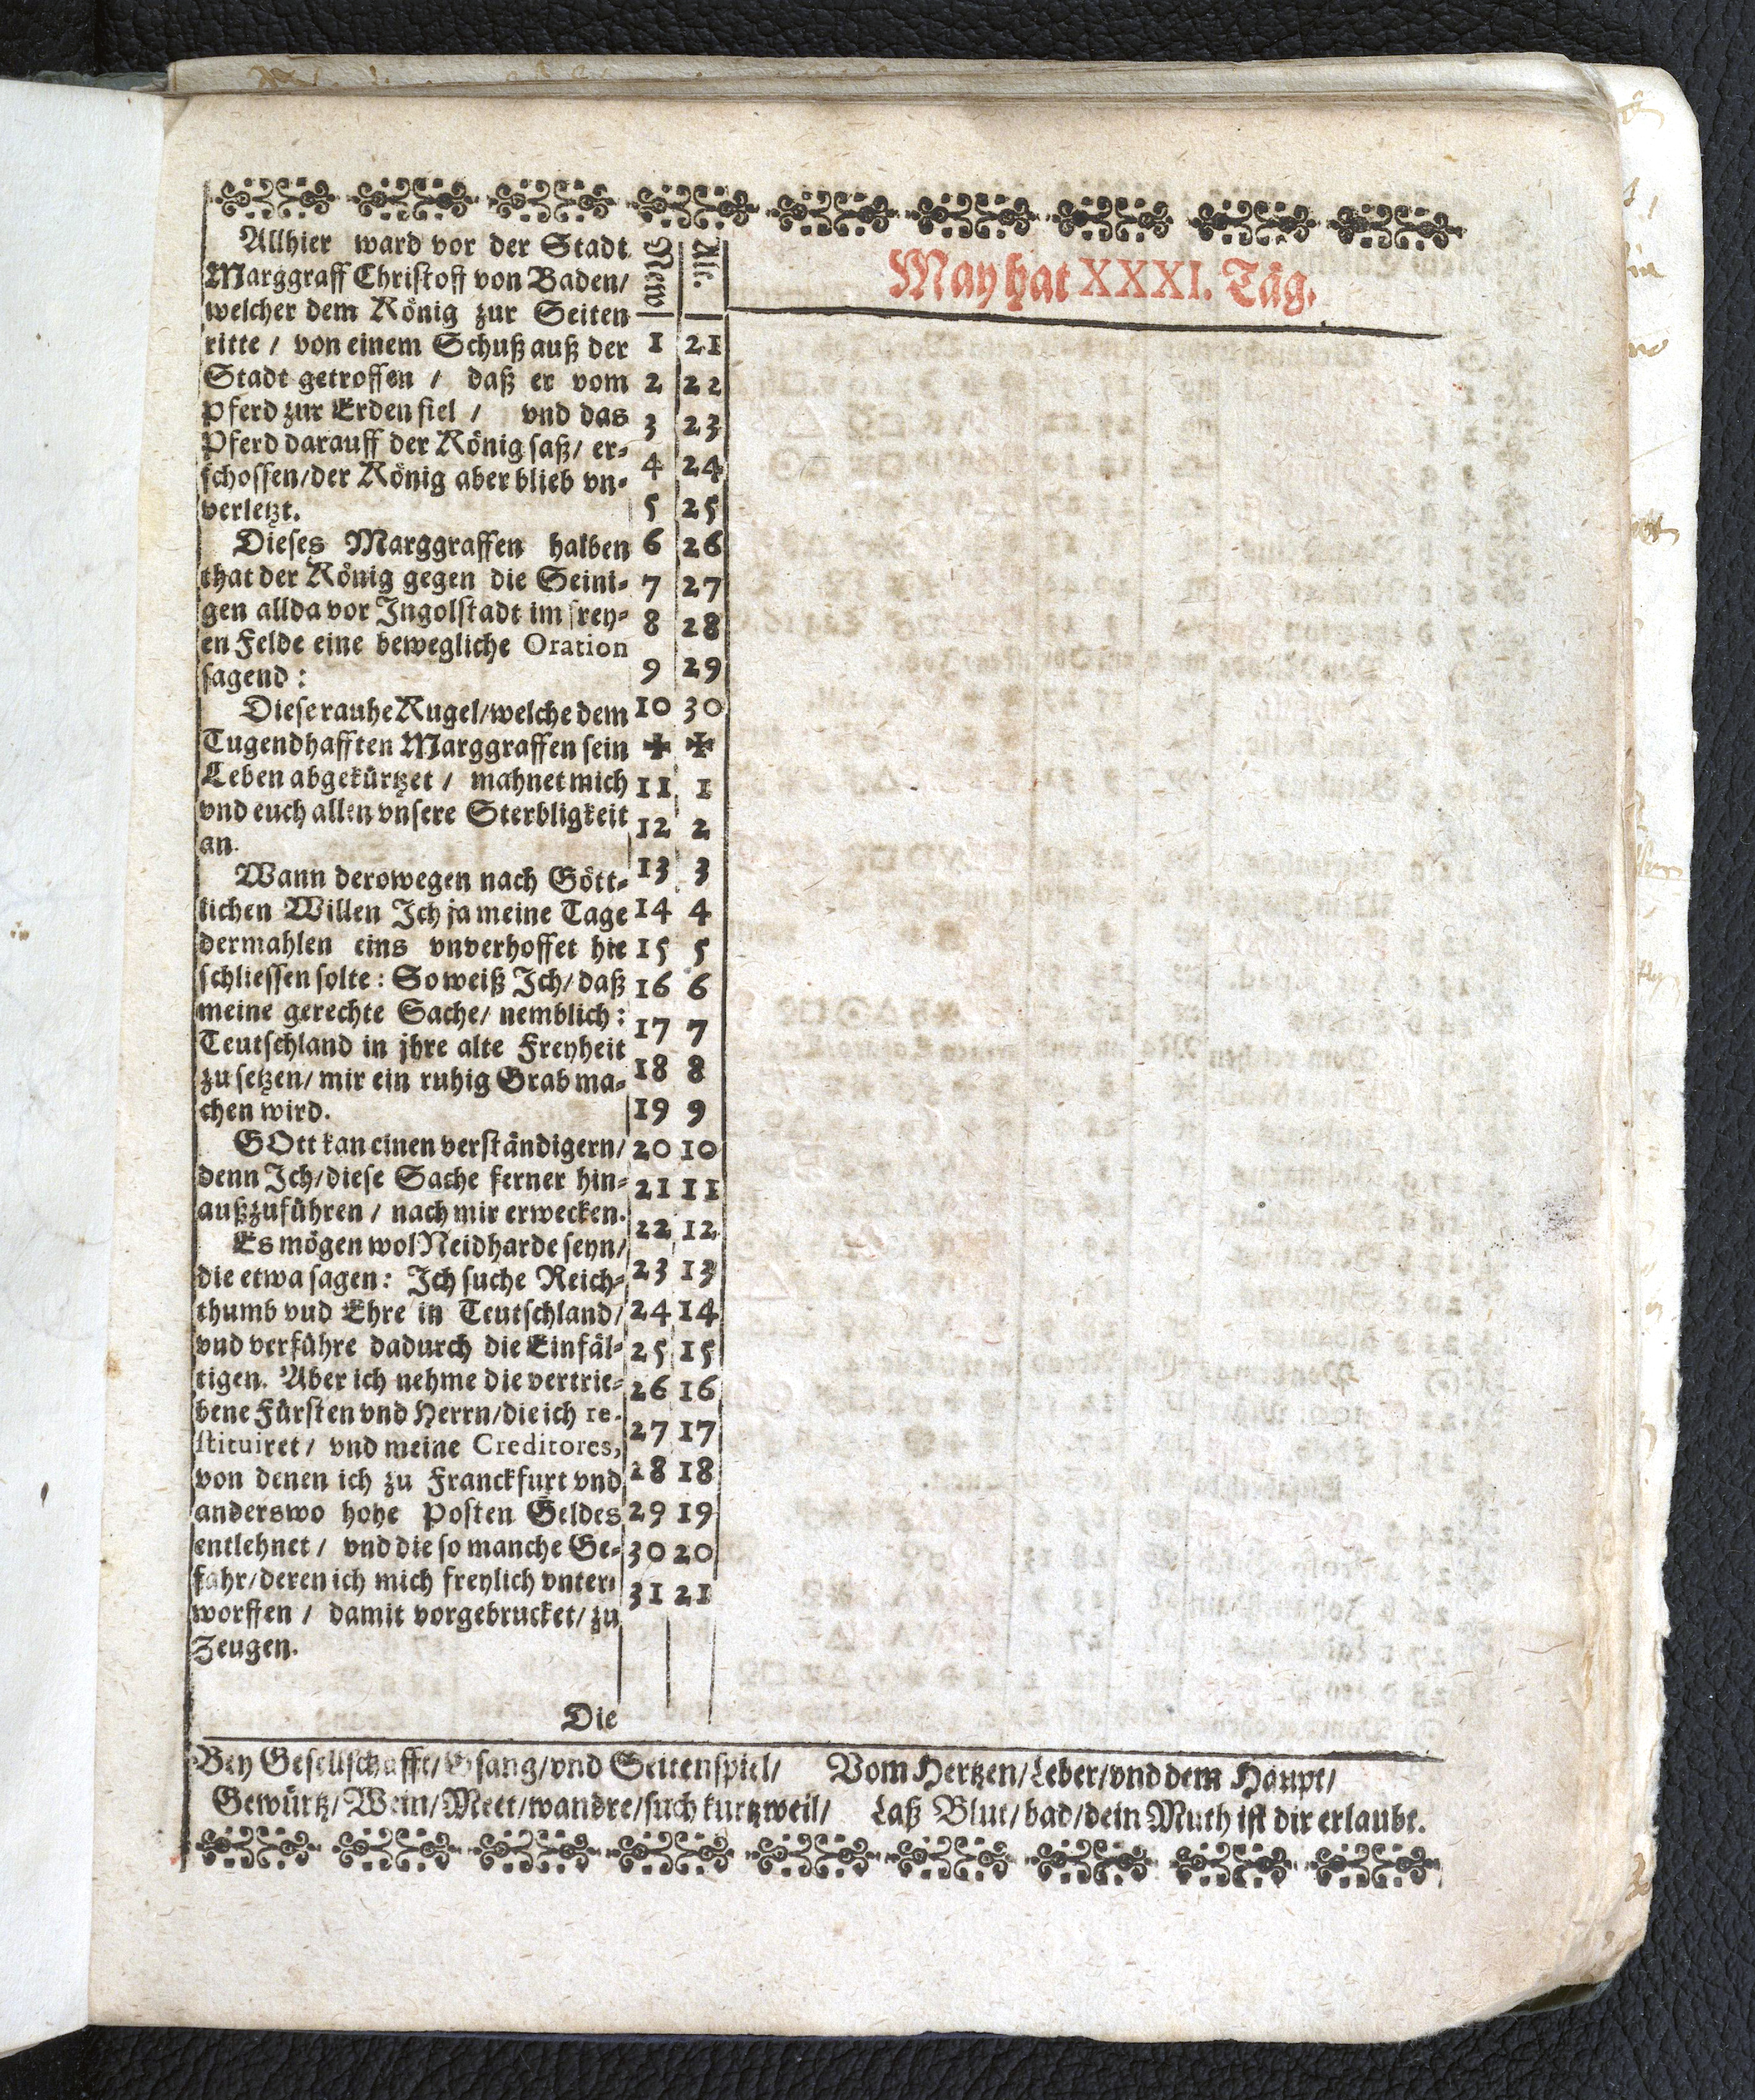 Allhier ward vor der Stadt
Marggraff Christoff von Baden/
welcher dem König zur Seiten
ritte / von einem Schuß auß der
Stadt getroffen / daß er vom
Pferd zur Erden fiel / vnd das
Pferd darauff der König saß/ er-
schossen/der König aber blieb vn-
verletzt.
Dieses Marggraffen halben
that der König gegen die Seini-
gen allda vor Ingolstadt im frey-
en Felde eine bewegliche Oration
sagend:
Diese rauhe Kugel/welche dem
Tugendhafften Marggraffen sein
Leben abgekürtzet / mahnet mich
vnd euch allen vnsere Sterbligkeit
an.
Wann derowegen nach Gött-
lichen Willen Ich ja meine Tage
dermahlen eins vnverhoffet hie
schliessen solte: So weiß Ich/ daß
meine gerechte Sache/ nemblich:
Teutschland in jhre alte Freyheit
zu setzen/ mir ein ruhig Grab ma-
chen wird.
GOtt kan einen verständigern/
denn Ich/diese Sache ferner hin-
außzuführen / nach mir erwecken.
Es mögen wol Neidharde seyn/
die etwa sagen: Ich suche Reich-
thumb vud Ehre in Teutschland/
vnd verführe dadurch die Einfäl-
tigen. Aber ich nehme die vertrie-
bene Fürsten vnd Herrn/die ich re-
stituiret / vnd meine Creditores,
von denen ich zu Franckfurt vnd
anderswo hohe Posten Geldes
entlehnet / vnd die so manche Ge-
fahr/deren ich mich freylich vnter-
worffen / damit vorgedrucket/ zu
Zeugen.
Die
New Alt.
1 21
2 22
3 23
4 24
5 25
6 26
7 27
8 28
9 29
10 30
✠ ✠
11 1
12 2
13 3
14 4
15 5
16 6
17 7
18 8
19 9
20 10
21 11
22 12
23 13
24 14
25 15
26 16
27 17
28 18
29 19
30 20
31 21
May hat XXXI. Täg.
Bey Gesellschafft/Gsang/vnd Seitenspiel/ Vom Hertzen/Leber/vnd dem Haupt/
Gewürtz/Wein/Meet/wandre/such kurtzweil/ Laß Blut/bad/dein Muth ist dir erlaubt.